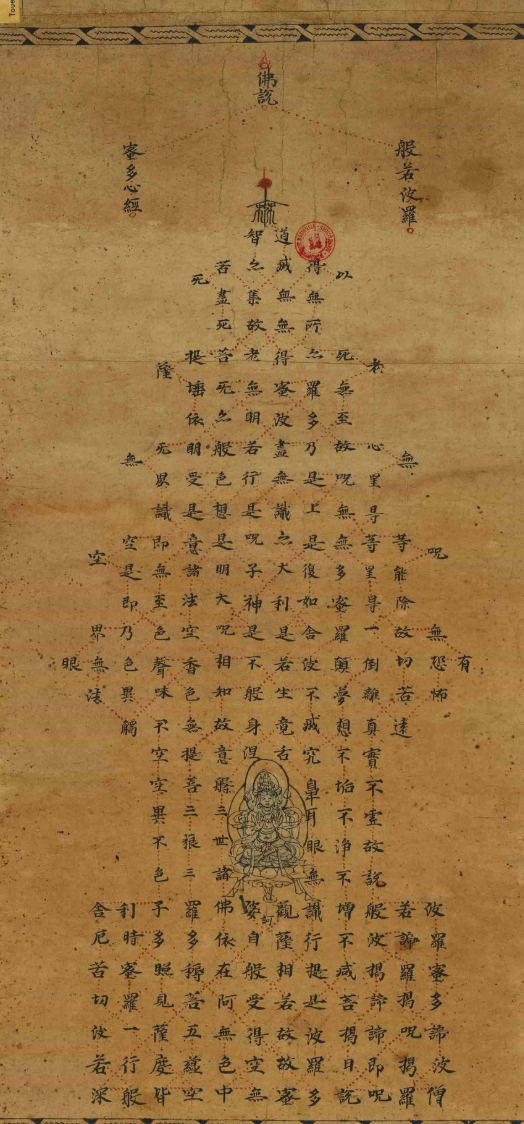 佛說
般若波羅
蜜多心經
有
呪
無恐怖
波羅蜜多諦波僧
無
等能除故切苦遠
若諦羅揭呪揭羅
老
心
等
一倒離真實不虛故說般波揭諦諦即呪
以
死無至故呪無無多蜜羅顛夢想不垢不淨不增不減菩揭日説
得無所亦羅多乃是上是復如舍波不滅究鼻耳眼無識行提是波羅多
道滅無無得蜜波盡無識亦大利是若生竟
觀蔭相若故故蜜
智之集故老無明若行是呪子神是不般身涅
婆自般受得空無
苦盡死苦死亦般色想是明大呪相知故意槃三世諸佛依在阿無色中
死
提埵依明受是意諸法空香色無提菩三
三羅多耨若五蘊空
蔭
死異識即無至色聲味不空空異不色子多照見蔭度皆
無
空是即乃色異觸
利時蜜羅一行般
空
界無法
舍厄苦切波若深
眼